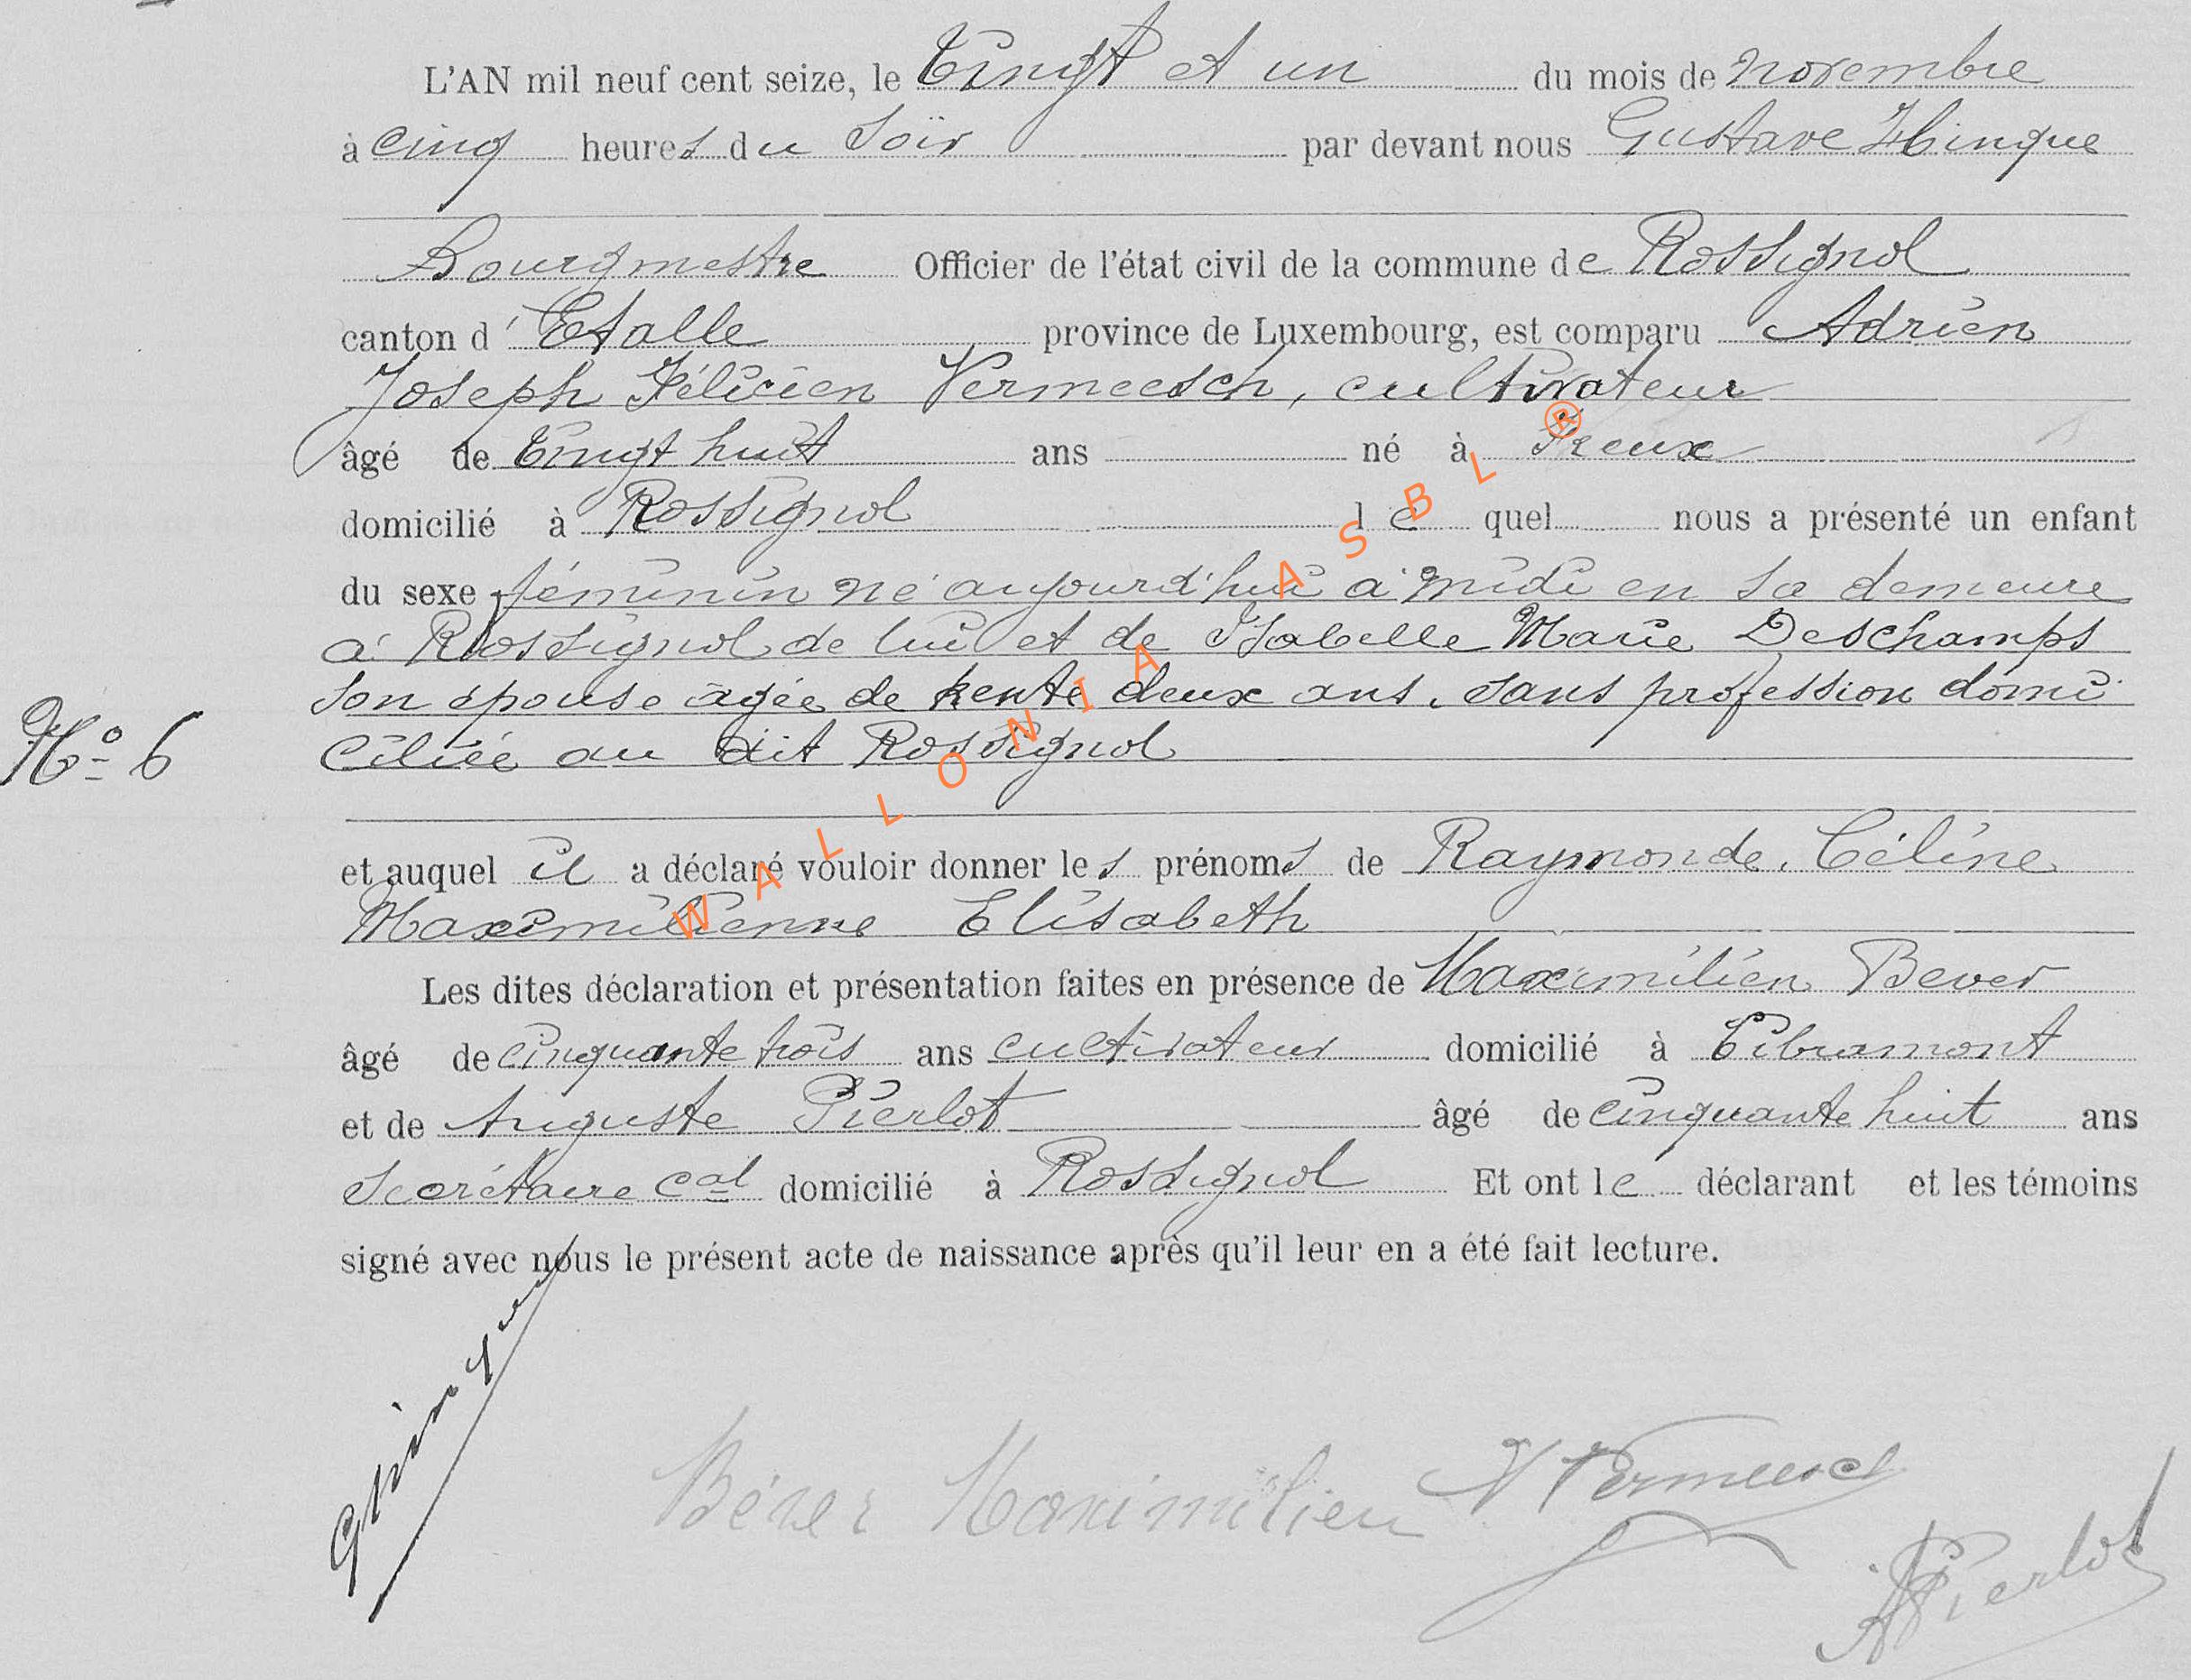 L'AN mil neuf cent seize, le Vingt et un du mois de novembre
à cinq heures du soir par devant nous Gustave Hinque
Bourgmestre Officier de l'état civil de la commune de Rossignol
canton d'Etalle province de Luxembourg, est comparu Adrien
Joseph Félicien Vermeesch, cultivateur
âgé de Vingt huit ans né à
domicilié à Rossignol lequel nous a présenté un enfant
du sexe féminin né aujourd'hui à midi en sa demeure
à Rossignol de lui et de Isabelle Marie Deschamps
son épouse âgée de trente deux ans, sans profession domi
ciliée au dit Rossignol
No 6
et auquel il a déclaré vouloir donner les prénoms de Raymonde, Céline
Maximilienne Elisabeth
Les dites déclaration et présentation faites en présence de Maximilien Bever
âgé de cinquante trois ans cultivateur domicilié à Vibramont
et de Auguste Pierlot âgé de cinquante huit ans
Secrétaire cal domicilié à Rossignol Et ont le déclarant et les témoins
signé avec nous le présent acte de naissance après qu'il leur en a été fait lecture.
Béver Maximilien
A Pierlot
WALLONIA ASBL ®